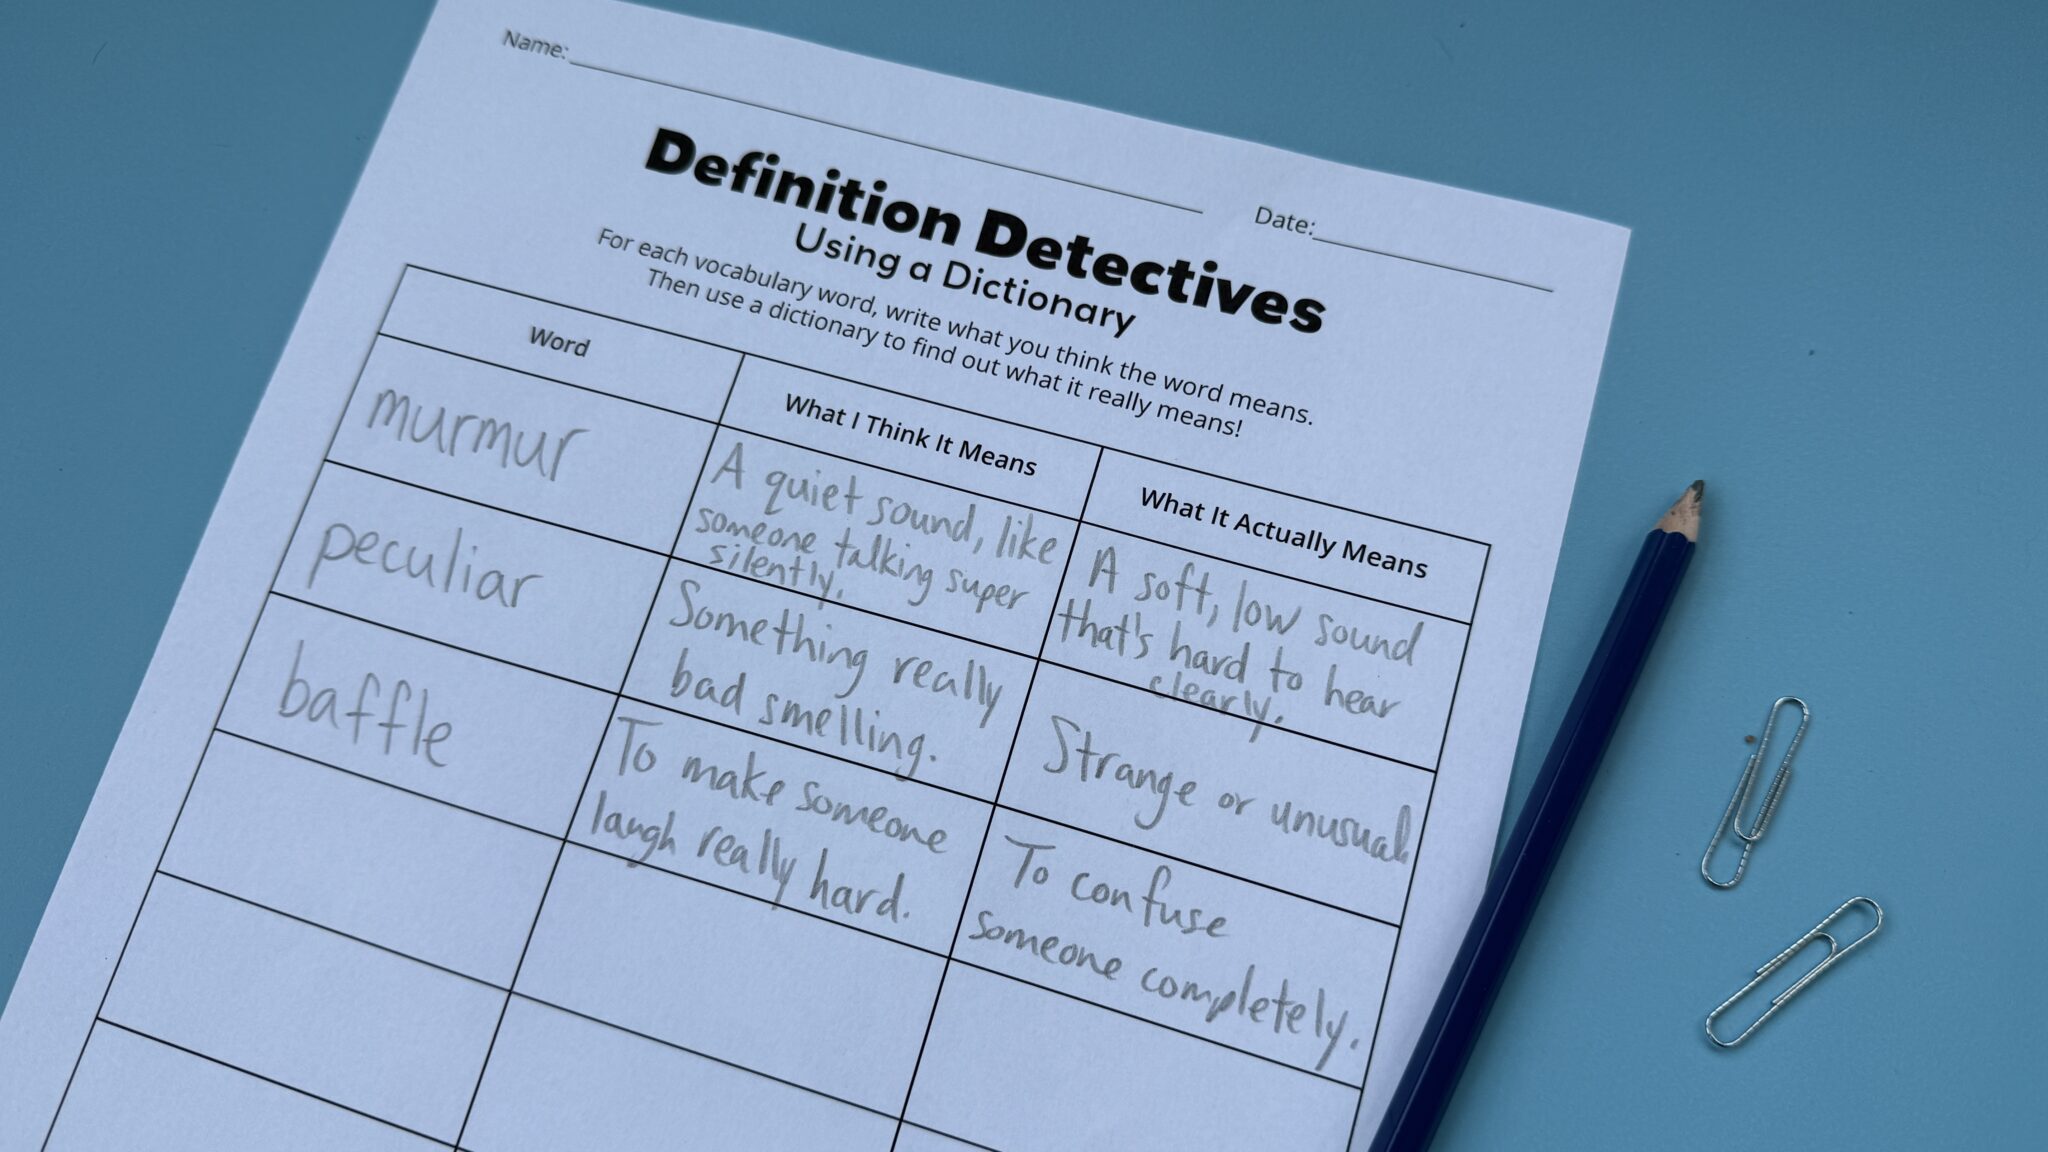 Name:
Date:
Definition Detectives
Using a Dictionary
For each vocabulary word, write what you think the word means.
Then use a dictionary to find out what it really means!
Word
What I Think It Means
What It Actually Means
murmur
A quiet sound, like
someone talking super
silently.
A soft, low sound
that's hard to hear
clearly.
peculiar
Something really
bad smelling.
Strange or unusual.
baffle
To make someone
laugh really hard.
To confuse
someone completely.